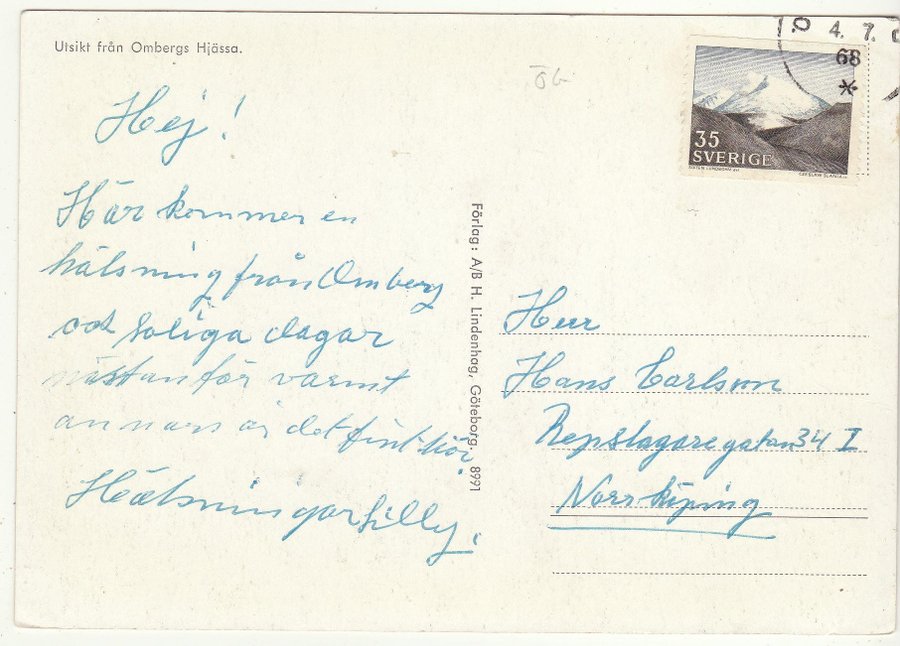 Utsikt från Ombergs Hjässa.
Hej!
Här kommer en
hälsning från Omberg
och soliga dagar
nästan för varmt
annars är det fint här.
Hälsningar Lilly.
Förlag: A/B H. Lindenhag, Göteborg. 8991
ÖG
4. 7.
68
35
SVERIGE
Herr
Hans Carlson
Repslagaregatan 34 I
Norrköping